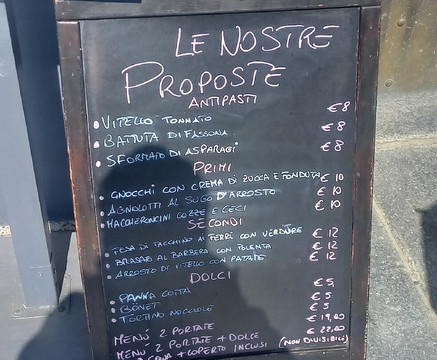 LE NOSTRE
PROPOSTE
ANTIPASTI
• VITELLO TONNATO € 8
• BATTUTA DI FASSONA € 8
• SFORMATO DI ASPARAGI € 8
PRIMI
• GNOCCHI CON CREMA DI ZUCCA E FONDUTA € 10
• AGNOLOTTI AL SUGO D'ARROSTO € 10
• MACCHERONCINI COZZE E CECI € 10
SECONDI
• FESA DI TACCHINO AI FERRI CON VERDURE € 12
• BRASATO AL BARBERA CON POLENTA € 12
• ARROSTO DI VITELLO CON PATATE € 12
DOLCI
• PANNA COTTA € 5
• BONET € 5
• TORTINO NOCCIOLE € 5
MENÚ 2 PORTATE € 19,00
MENÚ 2 PORTATE + DOLCE € 22,00
+ COPERTO INCLUSI (NON DIVISIBILI)